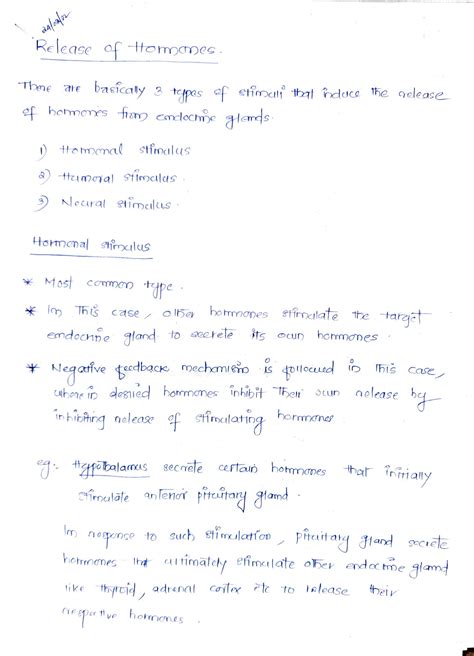 Release of Hormones.
There are basically 3 types of stimuli that induce the release
of hormones from endocrine glands.
1) Hormonal stimulus
2) Humoral stimulus.
3) Neural stimulus.
Hormonal stimulus
* Most common type.
* In This case, other hormones stimulate the target
endocrine gland to secrete its own hormones.
* Negative feedback mechanism is followed in This case,
wherein desired hormones inhibit Their own release by
inhibiting release of stimulating hormones
eg:- Hypothalamus secrete certain hormones that initially
stimulate anterior pituitary gland.
In response to such stimulation, pituitary gland secrete
hormones that ultimately stimulate other endocrine gland
like thyroid, adrenal cortex etc to release their
respective hormones.